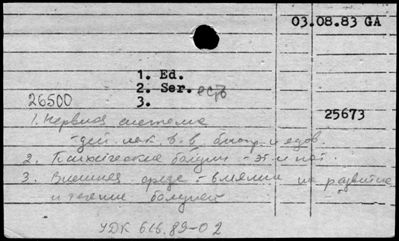 03.08.83 GA
1. Ed.
2. Ser. есть
26500
3.
25673
1. Нервная система
- дей. лек. в-в биопр. и ядов.
2. Психические болезни - эт. и пат.
3. Внешняя среда - влияние на развитие
и течение болезней
УДК 616.89-02